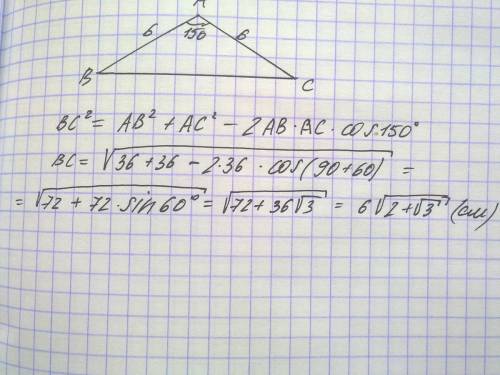 A
6 150 6
B C
BC² = AB² + AC² − 2AB·AC·cos150°
BC = √(36+36 − 2·36·cos(90+60)) =
= √(72+72·sin60°) = √(72+36√3) = 6√(2+√3) (см)